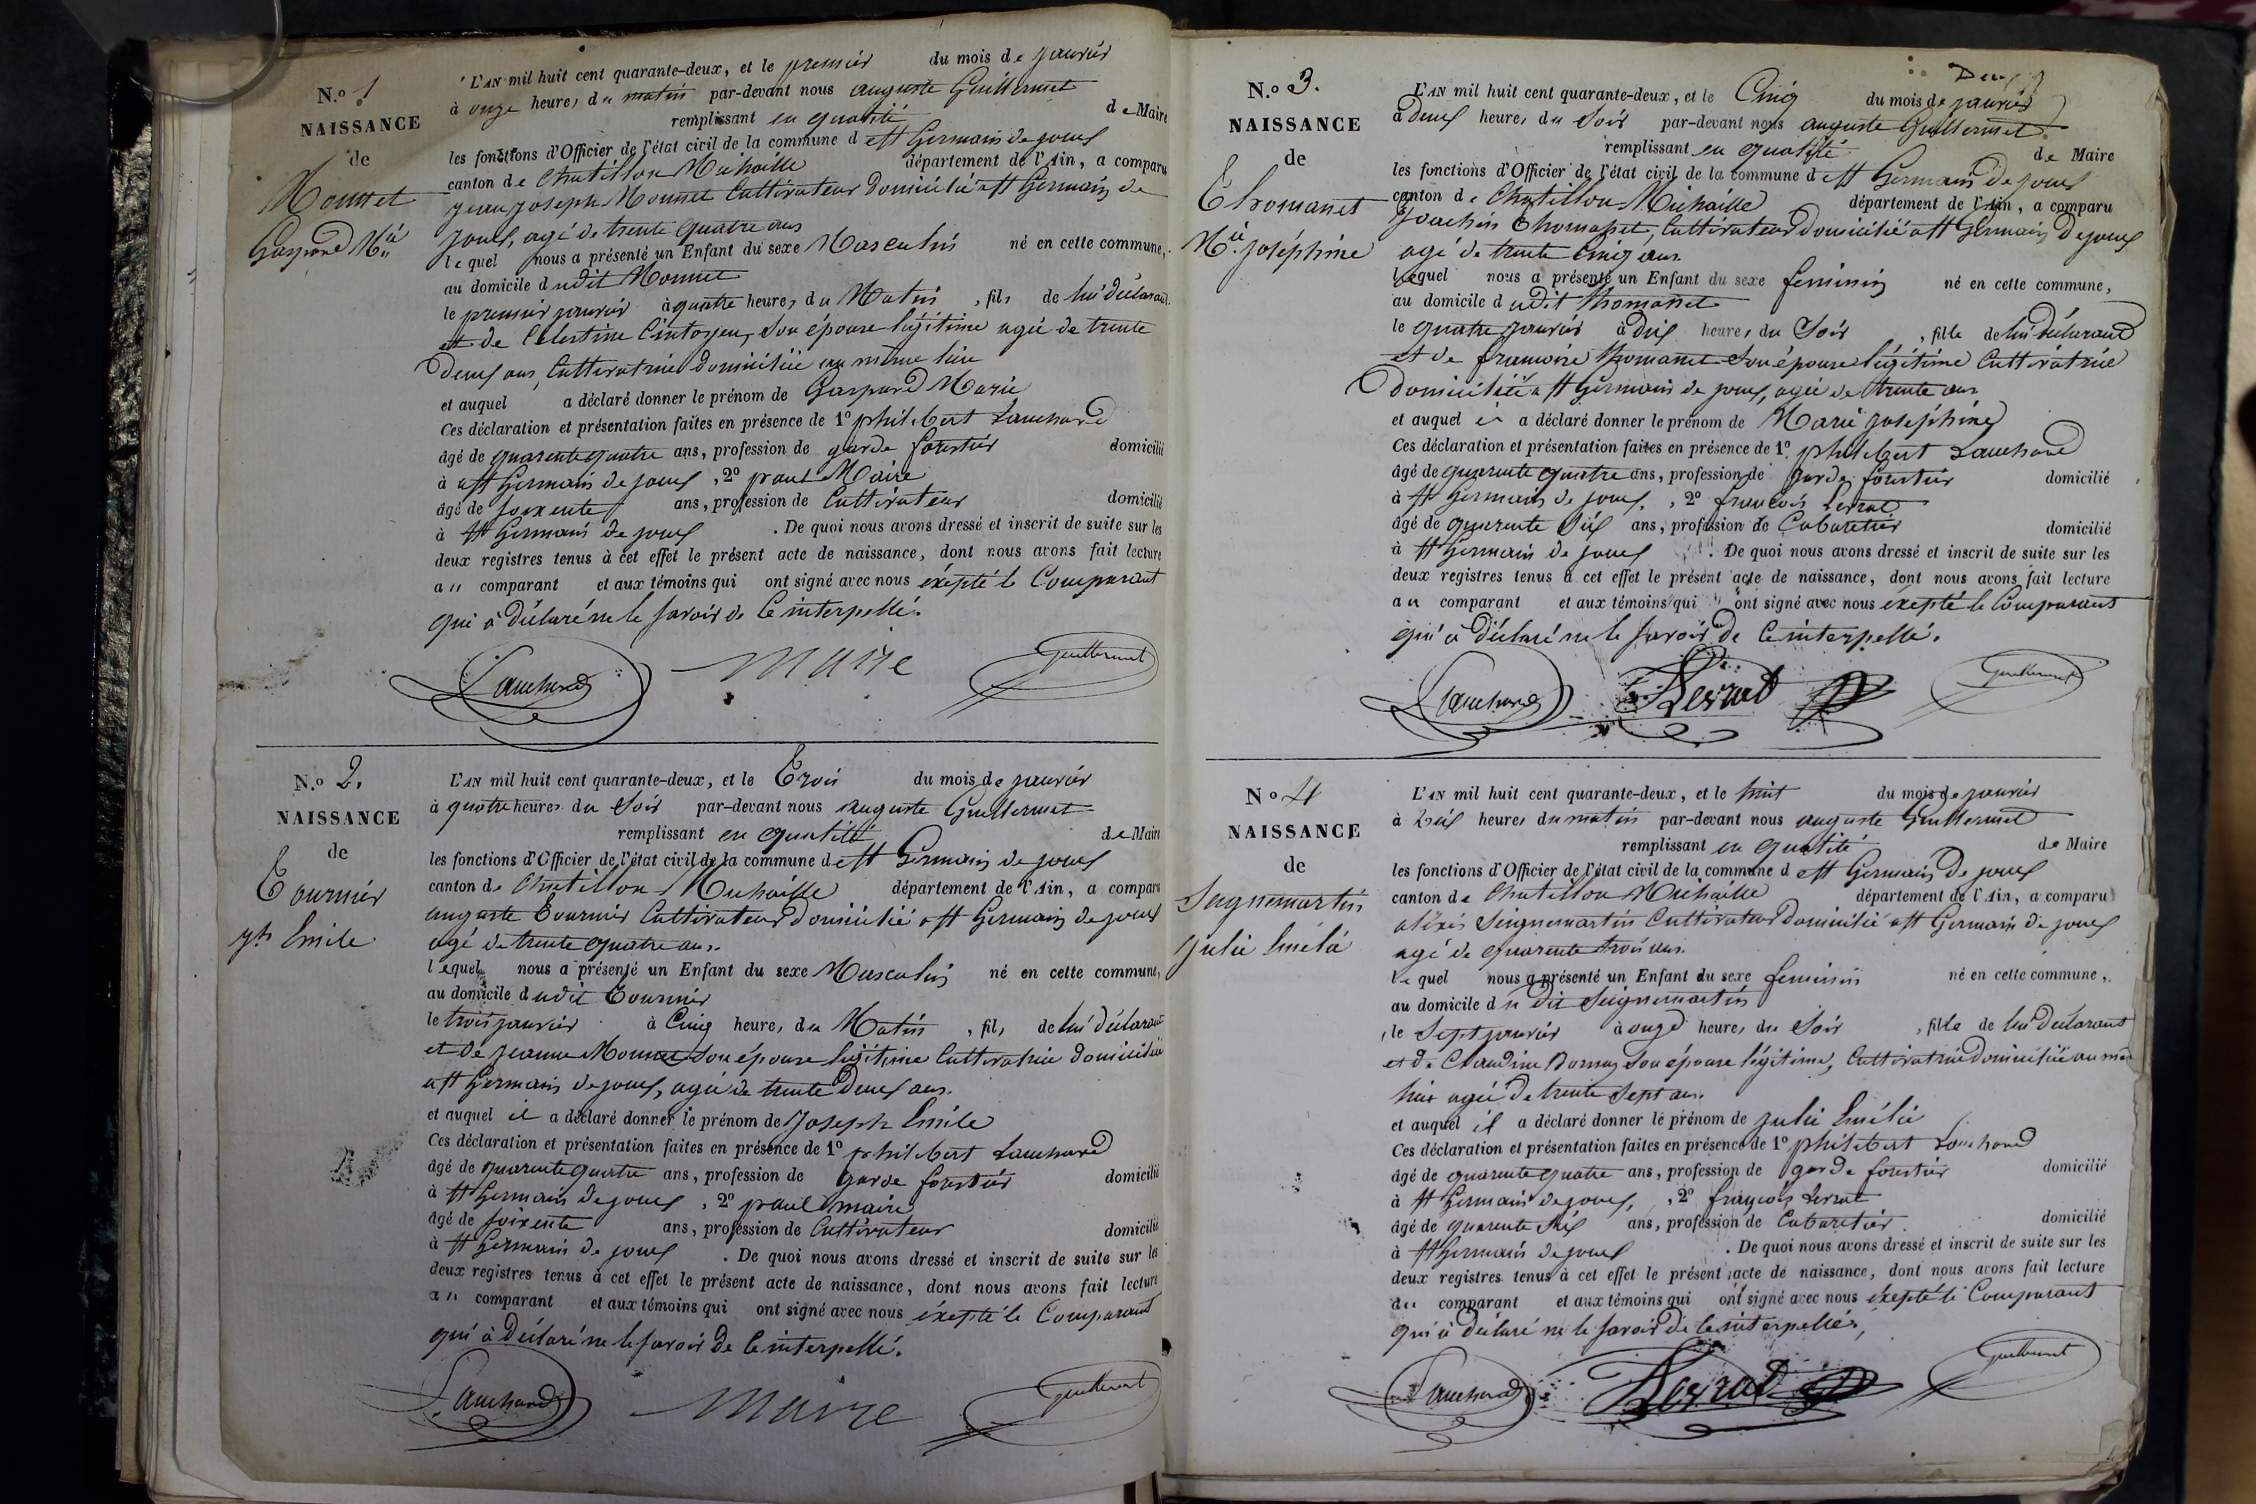 N.o 1
NAISSANCE
de
Mounet
Gaspard Mie
L'AN mil huit cent quarante-deux, et le premier du mois de janvier
à onze heures du matin par-devant nous auguste Guillermet
remplissant en qualité de Maire
les fonctions d'Officier de l'état civil de la commune de St Germain de joux
canton de Chatillon Michaille département de l'Ain, a comparu
jean joseph Mounet Cultivateur domicilié a St Germain de
joux, agé de trente quatre ans
lequel nous a présenté un Enfant du sexe Masculin né en cette commune,
au domicile dudit Mounet
le premier janvier à quatre heures du Matin, fils de lui déclarant
et de Célestine Cintoyen, son épouse légitime agée de trente
deux ans, Cultivatrice domiciliée au même lieu
et auquel a déclaré donner le prénom de Gaspard Marie
Ces déclaration et présentation faites en présence de 1o philibert Lauchard
âgé de quarente quatre ans, profession de garde forestier domicilié
à a St Germain de joux, 2o paul Maire
âgé de soixente ans, profession de Cultivateur domicilié
à St Germain de joux. De quoi nous avons dressé et inscrit de suite sur les
deux registres tenus à cet effet le présent acte de naissance, dont nous avons fait lecture
au comparant et aux témoins qui ont signé avec nous éxepté le Comparant
qui à déclaré ne le savoir de Ce interpellé.
Lauchard Maire Guillermet
N.o 2.
NAISSANCE
de
Tournier
jh Emile
L'AN mil huit cent quarante-deux, et le Trois du mois de janvier
à quatre heures du Soir par-devant nous auguste Guillermet
remplissant en qualité de Maire
les fonctions d'Officier de l'état civil de la commune de St Germain de joux
canton de Chatillon Michaille département de l'Ain, a comparu
auguste Tournier Cultivateur domicilié a St Germain de joux
agé de trente quatre ans.
lequel nous a présenté un Enfant du sexe Masculin né en cette commune,
au domicile dudit Tournier
le trois janvier à Cinq heures du Matin, fils de lui déclarant
et de jeanne Mounet son épouse légitime Cultivatrice domiciliée
a St Germain de joux, agée de trente deux ans.
et auquel il a déclaré donner le prénom de Joseph Emile
Ces déclaration et présentation faites en présence de 1o philibert Lauchard
âgé de quarente quatre ans, profession de garde forestier domicilié
à St Germain de joux, 2o paul maire
âgé de soixente ans, profession de Cultivateur domicilié
à St Germain de joux. De quoi nous avons dressé et inscrit de suite sur les
deux registres tenus à cet effet le présent acte de naissance, dont nous avons fait lecture
au comparant et aux témoins qui ont signé avec nous éxepté le Comparant
qui à déclaré ne le savoir de Ce interpellé.
Lauchard Maire Guillermet
Deux
N.o 3.
NAISSANCE
de
Thomasset
Mie joséphine
L'AN mil huit cent quarante-deux, et le Cinq du mois de janvier
à deux heures du Soir par-devant nous auguste Guillermet
remplissant en qualité de Maire
les fonctions d'Officier de l'état civil de la commune de St Germain de joux
canton de Chatillon Michaille département de l'Ain, a comparu
Joachin Thomasset, Cultivateur domicilié a St Germain de joux
agé de trente Cinq ans.
lequel nous a présenté un Enfant du sexe feminin né en cette commune,
au domicile dudit Thomasset
le quatre janvier à dix heures du Soir, fille de lui déclarant
et de francoise Thomasset son épouse légitime Cultivatrice
domiciliée a St Germain de joux, agée de trente ans
et auquel il a déclaré donner le prénom de Marie joséphine
Ces déclaration et présentation faites en présence de 1o philibert Lauchard
âgé de quarente quatre ans, profession de garde forestier domicilié
à St Germain de joux, 2o francois Levrat
âgé de quarente six ans, profession de Cabaretier domicilié
à St Germain de joux. De quoi nous avons dressé et inscrit de suite sur les
deux registres tenus à cet effet le présent acte de naissance, dont nous avons fait lecture
au comparant et aux témoins qui ont signé avec nous éxepté le Comparant
qui à déclaré ne le savoir de Ce interpellé.
Lauchard Levrat Guillermet
No 4
NAISSANCE
de
Segnemartin
Julie Emélie
L'AN mil huit cent quarante-deux, et le huit du mois de janvier
à dix heures du matin par-devant nous auguste Guillermet
remplissant en qualité de Maire
les fonctions d'Officier de l'état civil de la commune de St Germain de joux
canton de Chatillon Michaille département de l'Ain, a comparu
aléxis Seignemartin Cultivateur domicilié a St Germain de joux
agé de quarente trois ans.
lequel nous a présenté un Enfant du sexe feminin né en cette commune,
au domicile du dit Seignemartin
le Sept janvier à onze heures du Soir, fille de lui déclarant
et de Claudine Bornay son épouse légitime, Cultivatrice domiciliée au même
lieu agée de trente sept ans.
et auquel il a déclaré donner le prénom de julie Emélie
Ces déclaration et présentation faites en présence de 1o philibert Lauchard
âgé de quarente quatre ans, profession de garde forestier domicilié
à St Germain de joux, 2o françois Levrat
âgé de quarente six ans, profession de Cabaretier domicilié
à St Germain de joux. De quoi nous avons dressé et inscrit de suite sur les
deux registres tenus à cet effet le présent acte de naissance, dont nous avons fait lecture
du comparant et aux témoins qui ont signé avec nous éxepté le Comparant
qui à déclaré ne le savoir de Ce interpellés,
Lauchard Levrat Guillermet